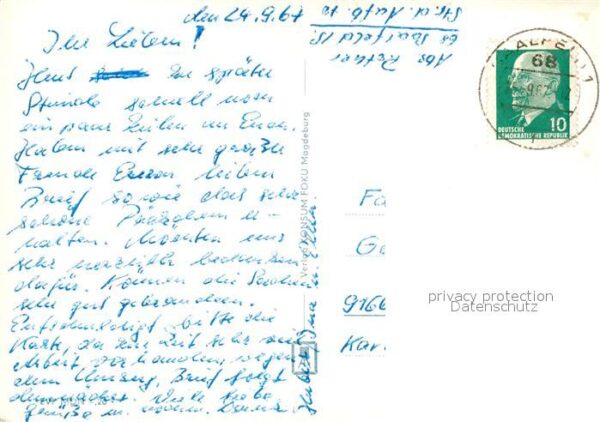 den 29.9.67
Ihr Lieben!
Heut zu später
Stunde schnell noch
ein paar Zeilen an Euch.
Haben mit sehr großer
Freude Euren lieben
Brief sowie das sehr
schöne Päckchen er-
halten. Möchten uns
sehr herzlich bedanken
dafür. Können die Sachen
sehr gut gebrauchen.
Entschuldigt bitte die
Karte, da zur Zeit sehr viel
Arbeit vorhanden, wegen
dem Umzug, Brief folgt
demnächst. Viele liebe
Grüße u. nochm. Danke
Abs.
68 Saalfeld /S.
Str. d. Aufb.
Verlag KONSUM FOKU Magdeburg
68
10
DEUTSCHE
DEMOKRATISCHE REPUBLIK
Fa
Ge
9166
Kar.
privacy protection
Datenschutz